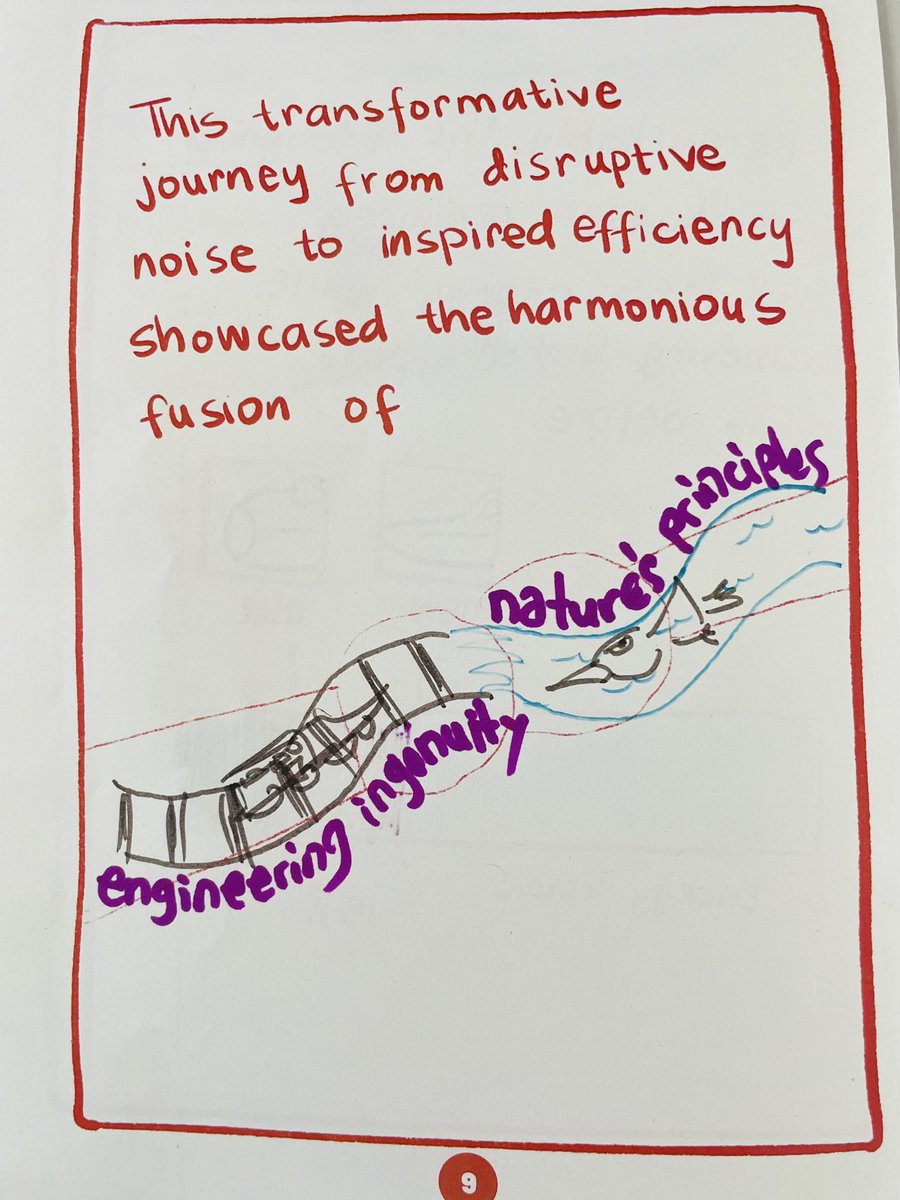 This transformative
journey from disruptive
noise to inspired efficiency
showcased the harmonious
fusion of
nature's principles
engineering ingenuity
9